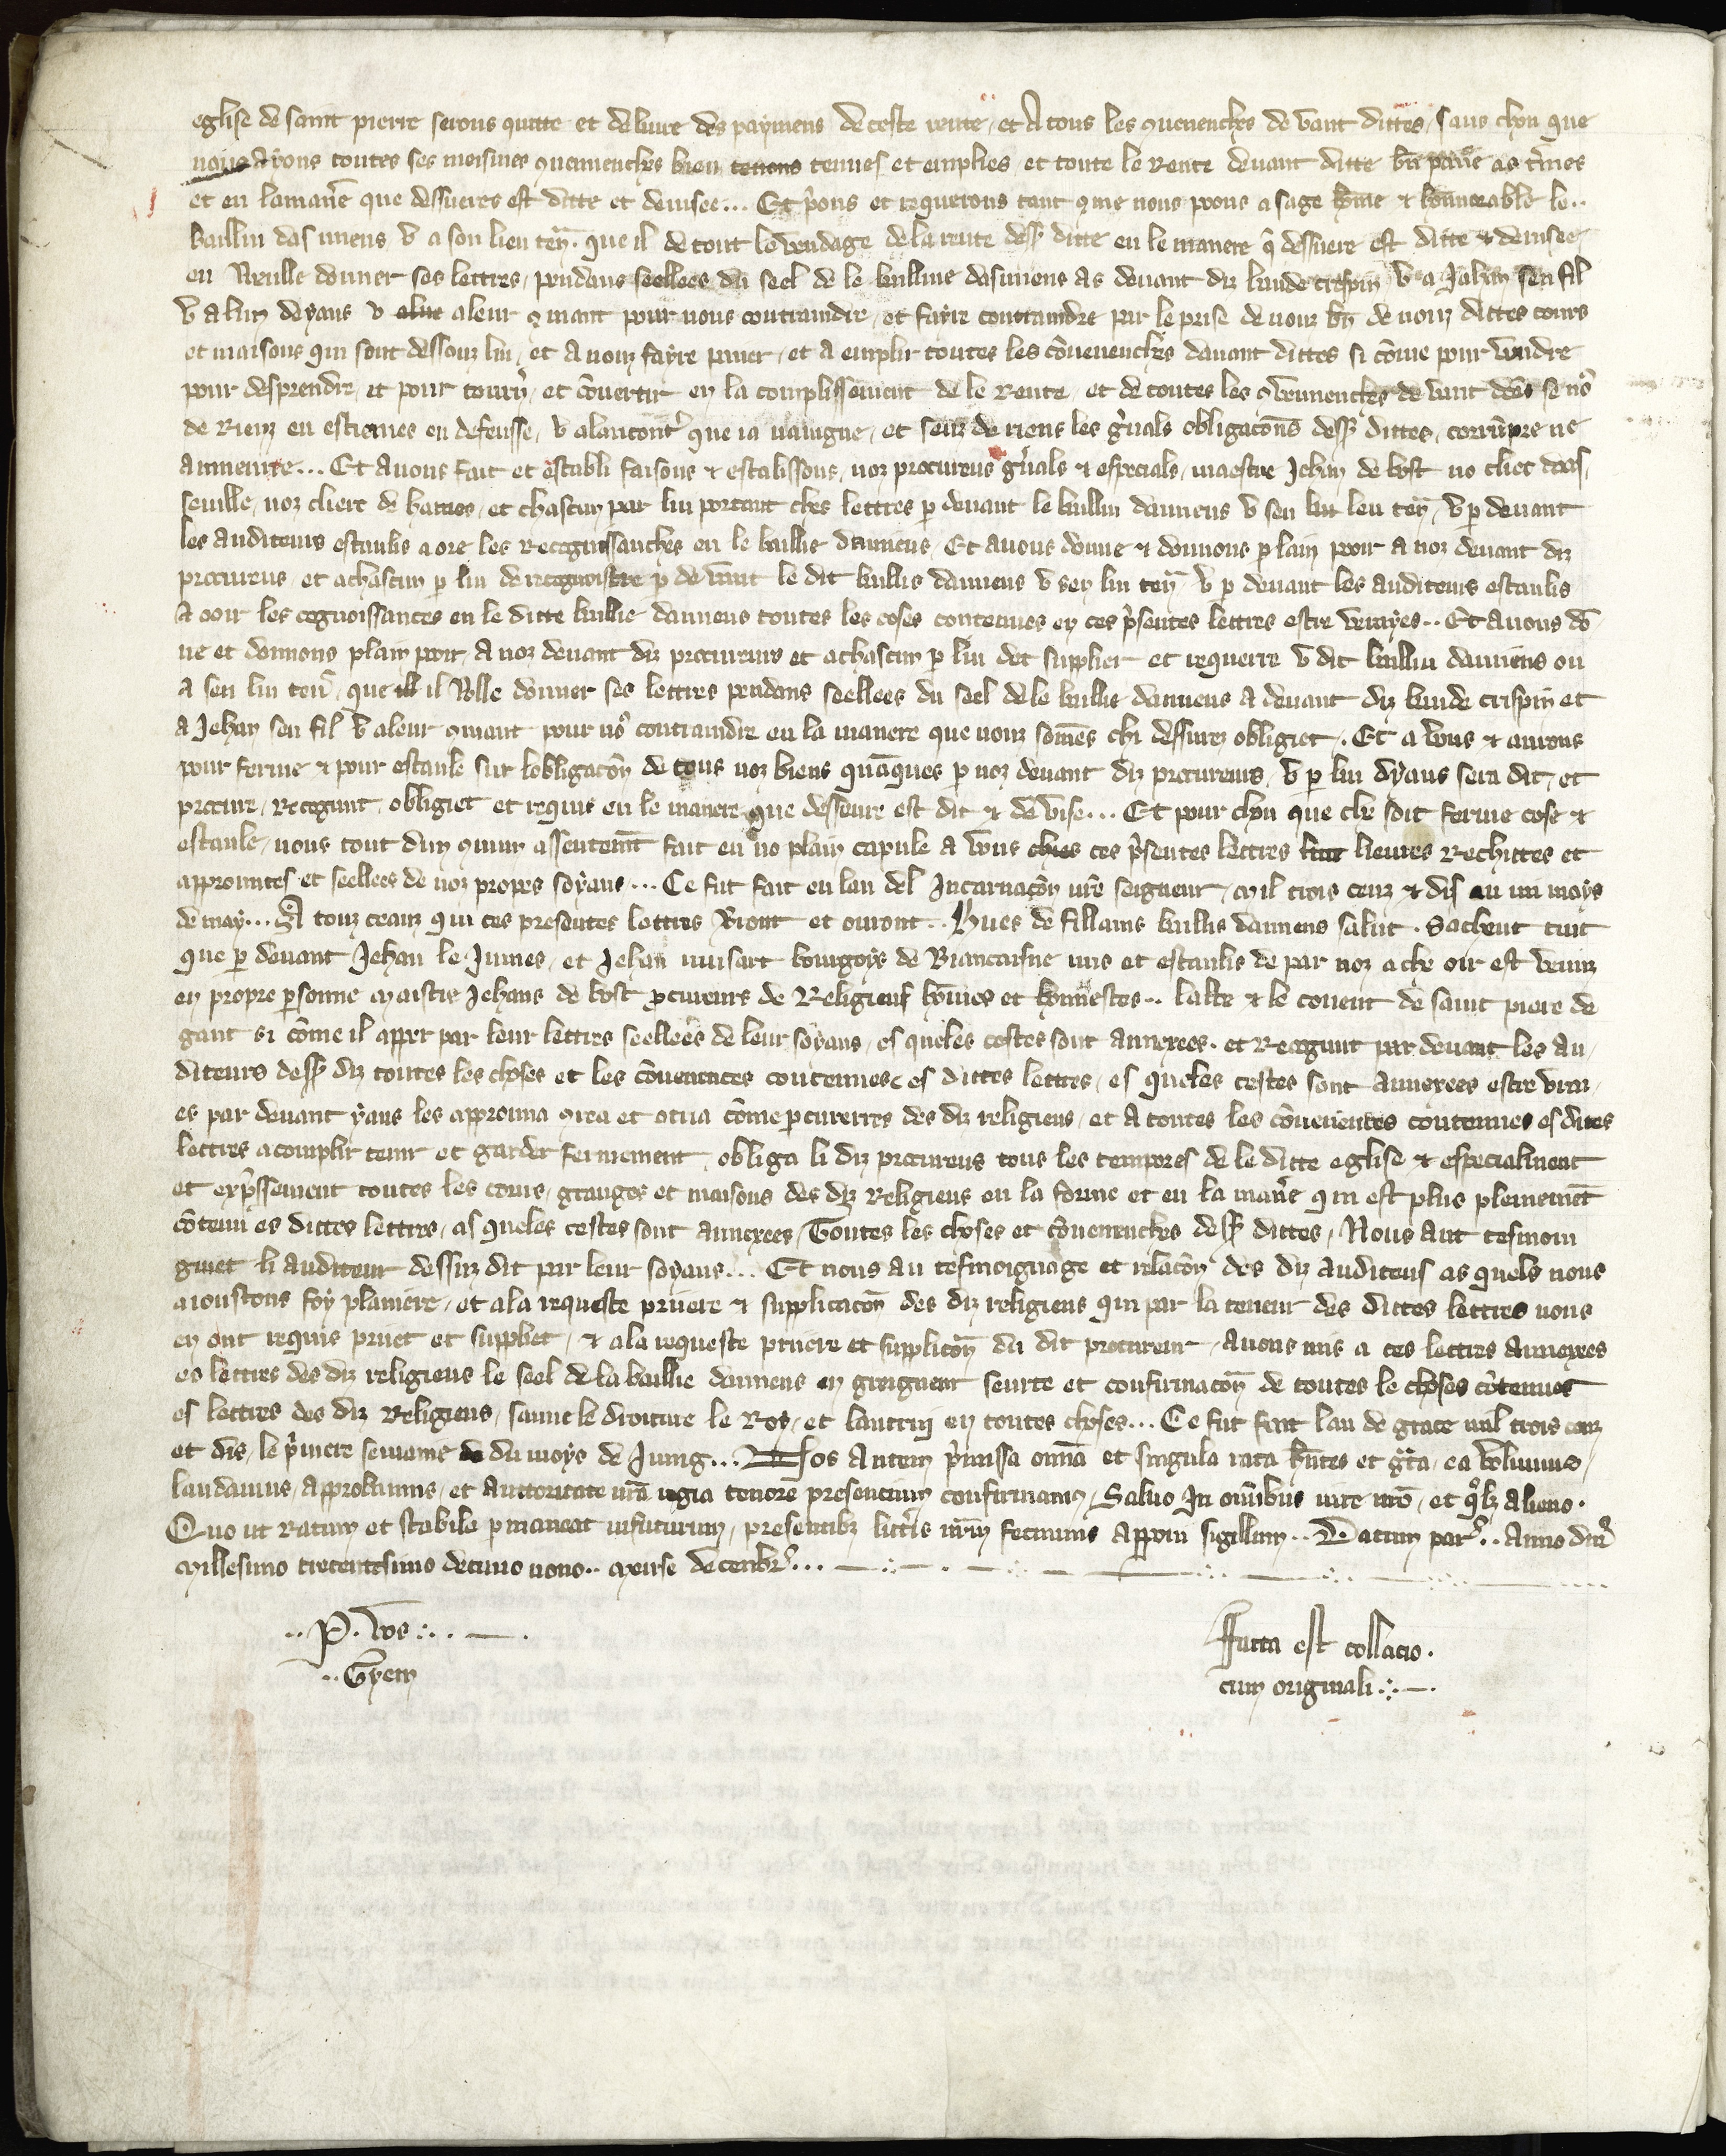 eglise de saint pierre serons quitte et deliure des paymens de ceste rente, et A tous les quenenches de vant dittes, saus chou que
nous Ayons toutes ses meismes quemenches bien tenues et emplies, et toute le Rente deuant ditte bn̄ paiie as t̄mes
et en la maner̄ que desseures est ditte et deuisee... Et p̄ons et requerons tant q̄me nous poons a sage hōme & hounerable le..
baillui dasmiens v̄ a son lieu ten̄. que il de tout le vendage de la rente dess̄ ditte en le manere q̄ desseure est ditte & deuisee
en Veulle donner ses lettres, pendans seellees du seel de le baillius dasmiens as deuant diz baude crespin v̄ a Jehan sen fil
v̄ a lun deyaus v̄ aleur q̄mant pour nous contraindre, et fayre contraindre par le prise de nouz bn̄ de nouz dittes cours
et maisons qui sont dessouz lui, et A nouz fayre paier, et A emplir toutes les cōuenenches dauant dittes si cōme pour vendre
pour desprendre et pour tourn̄, et cōuertir en la complissement de le Rente, et de toutes les q̄uenenches de vant
de Rienz en estiemes en defensse, v̄ alancont̄ que ia nauigne, et senz de riens les gn̄als obligacōns dess̄ dittes, corrūpre ne
Anneure... Et Auons fait et establi faisons & establissons, noz procureurs gn̄als & especials, maestre Jehan de bost no cliec
seuille, noz cliere de harnes, et chascun par lui portant ches lettres p̄ deuant le baillui damiens v̄ sen leu ten̄, v̄ p̄ deuant
les auditeurs estaulis a ore les Recognissanches en le baillie damiens, Et Auons donne & donnons plain pooir A noz deuant diz
procureus, et achascun p̄ lui de recognoistre p̄ de vant le dit baillis damiens v̄ sen lui ten̄ v̄ p̄ deuant les auditeurs estaulis
A ooir les cognoissances en le ditte baillie damiens toutes les coses contenues en ces p̄sentes lettres estre vrayes.. Et Auons dō
ne et donnons plain pooir, A noz deuant diz procureurs et achascun p̄ lui det supplier et requerre v̄ dit baillui damiens ou
A sen lui ten̄, que il Volle donner ses lettres pendans seellees du seel de le baillie damiens A deuant diz baude crispin et
A Jehan sen fil v̄ aleur q̄mant pour n̄s contraindre en la manere que nouz somes chi desseurez obligiet. Et A vons & aurons
pour ferme & pour estaule sur lobligacōn de tous noz biens quāques p̄ noz deuant diz procureurs, v̄ p̄ lui dyaus sera dit, et
procure, recognut, obligiet et requis en le manere que desseure est dit & de vise... Et pour chou que che soit ferme cose &
estaule, nous tout dun q̄mun assentemt̄ fait en no plain capitle A vons ces p̄sentes lettres lieures Rechittes et
approuues et seellees de noz propres soyaus... Ce fut fait en lan del Incarnacōn nr̄e seigneur, mil trois cenz & dis au moys
de may... A touz ceauz qui ces presentes lettres Vront et oirront.. Hues de fillains baillis damiens salut. Sachent tuit
que p̄ deuant Jehan le Juines, et Jehan musart bourgoys de Biancaisne mis et estaulis de par noz a che oir est venuz
en propre p̄sonne maistre Jehans de bost p̄cureurs de Religieus hōmes et hounestes.. labbe & le couent de saint piere de
gant si cōme il appert par leur lettres seellees de leur soyaus, es queles cestes sont annexees. et Recognut par deuant les au
diteurs dess̄ diz toutes les choses et les cōuenances contenues es dittes lettres, es queles cestes sont annexees estre vrai
es par deuant yaus les approuua q̄rea et otria cōme p̄cureerres des diz religieus, et A toutes les cōueuentes contenues es dites
lettres acomplir tenir et garder fermement, obliga li diz procureus tous les tempores de le ditte eglise & especialment
et exp̄ssement toutes les cours, granges et maisons des diz Religieus en la forme et en la man̄e q̄ en est plus plenemēt
cōtenu es dittes lettres, as queles cestes sont annexees, Toutes les choses et cōuenenches dess̄ dittes, Nous ant tesmoin
gniet li auditeur dessuz dit par leur soyaus... Et nous au tesmoignage et relacōn des diz auditeus as quels nous
aioustons foy planiere, et a la requeste pruiere & supplicacōn des diz religieus qui par la teneur des dittes lettres nous
en ont requis priiet et suppliet, & a la requeste pruiere et supplicōn du dit procureur, Auons mis a ces lettres annexees
es lettres des diz religieus le seel de la baillie damiens en greigneur seurte et confirmacōn de toutes le choses cōtenues
es lettres des diz Religieus, sauue le droiture le Roy, et lautrui en toutes choses... Ce fut fait lan de grace mil trois cenz
et dis, le p̄miere semaine du moys de Juing... Nos Autem p̄missa omīa et singula rata hn̄tes et gr̄ta, ea volumus,
laudamus, Approbamus, et Auttoritate nr̄a regia tenore presentium confirmamus, Saluo In omībus iure nr̄o, et q̄lz Alieno.
Quo ut Ratum et stabile p̄maneat in futurum, presentibz litt̄is nr̄um fecimus Apponi sigillum.. Datum par̄.. Anno dn̄i
Millesimo trecentesimo decimo nono.. Mense decembr̄...
..P. vos...
..Gyem
Facta est collacio.
cum originali